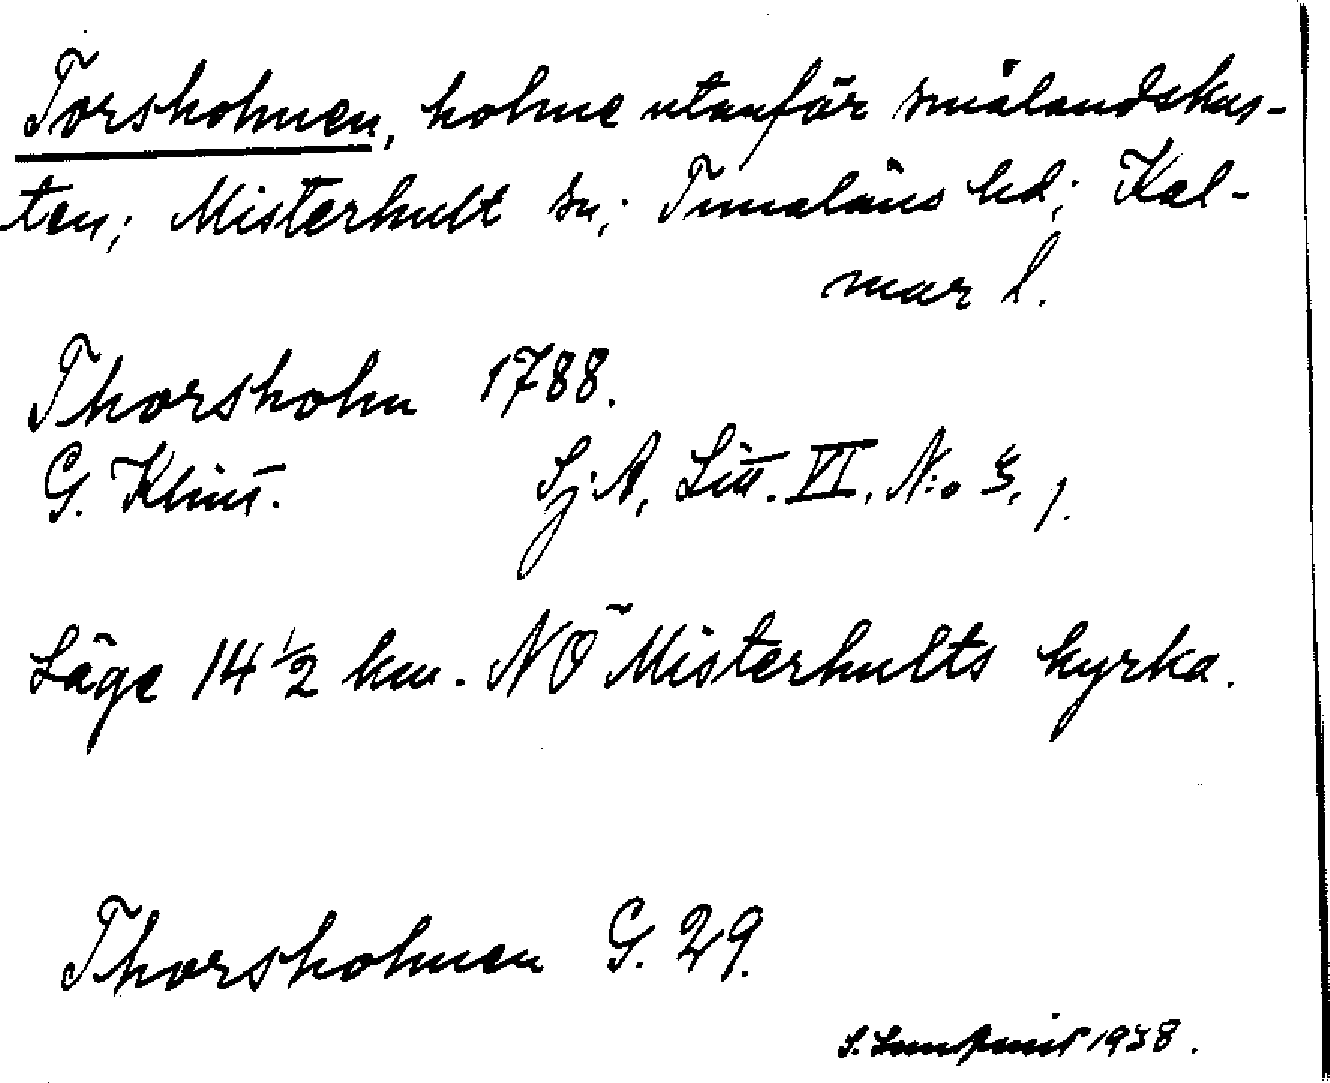 Torsholmen, holme utanför smålandskus-
ten; Misterhult sn; Tunaläns hd; Kal-
mar l.
Thorsholm 1788.
G. Klint. Sj. A, Litt. VI, N:o 3, 1.
Läge 14 1/2 km. NÖ Misterhults kyrka.
Thorsholmen G. 29.
S. 1938.